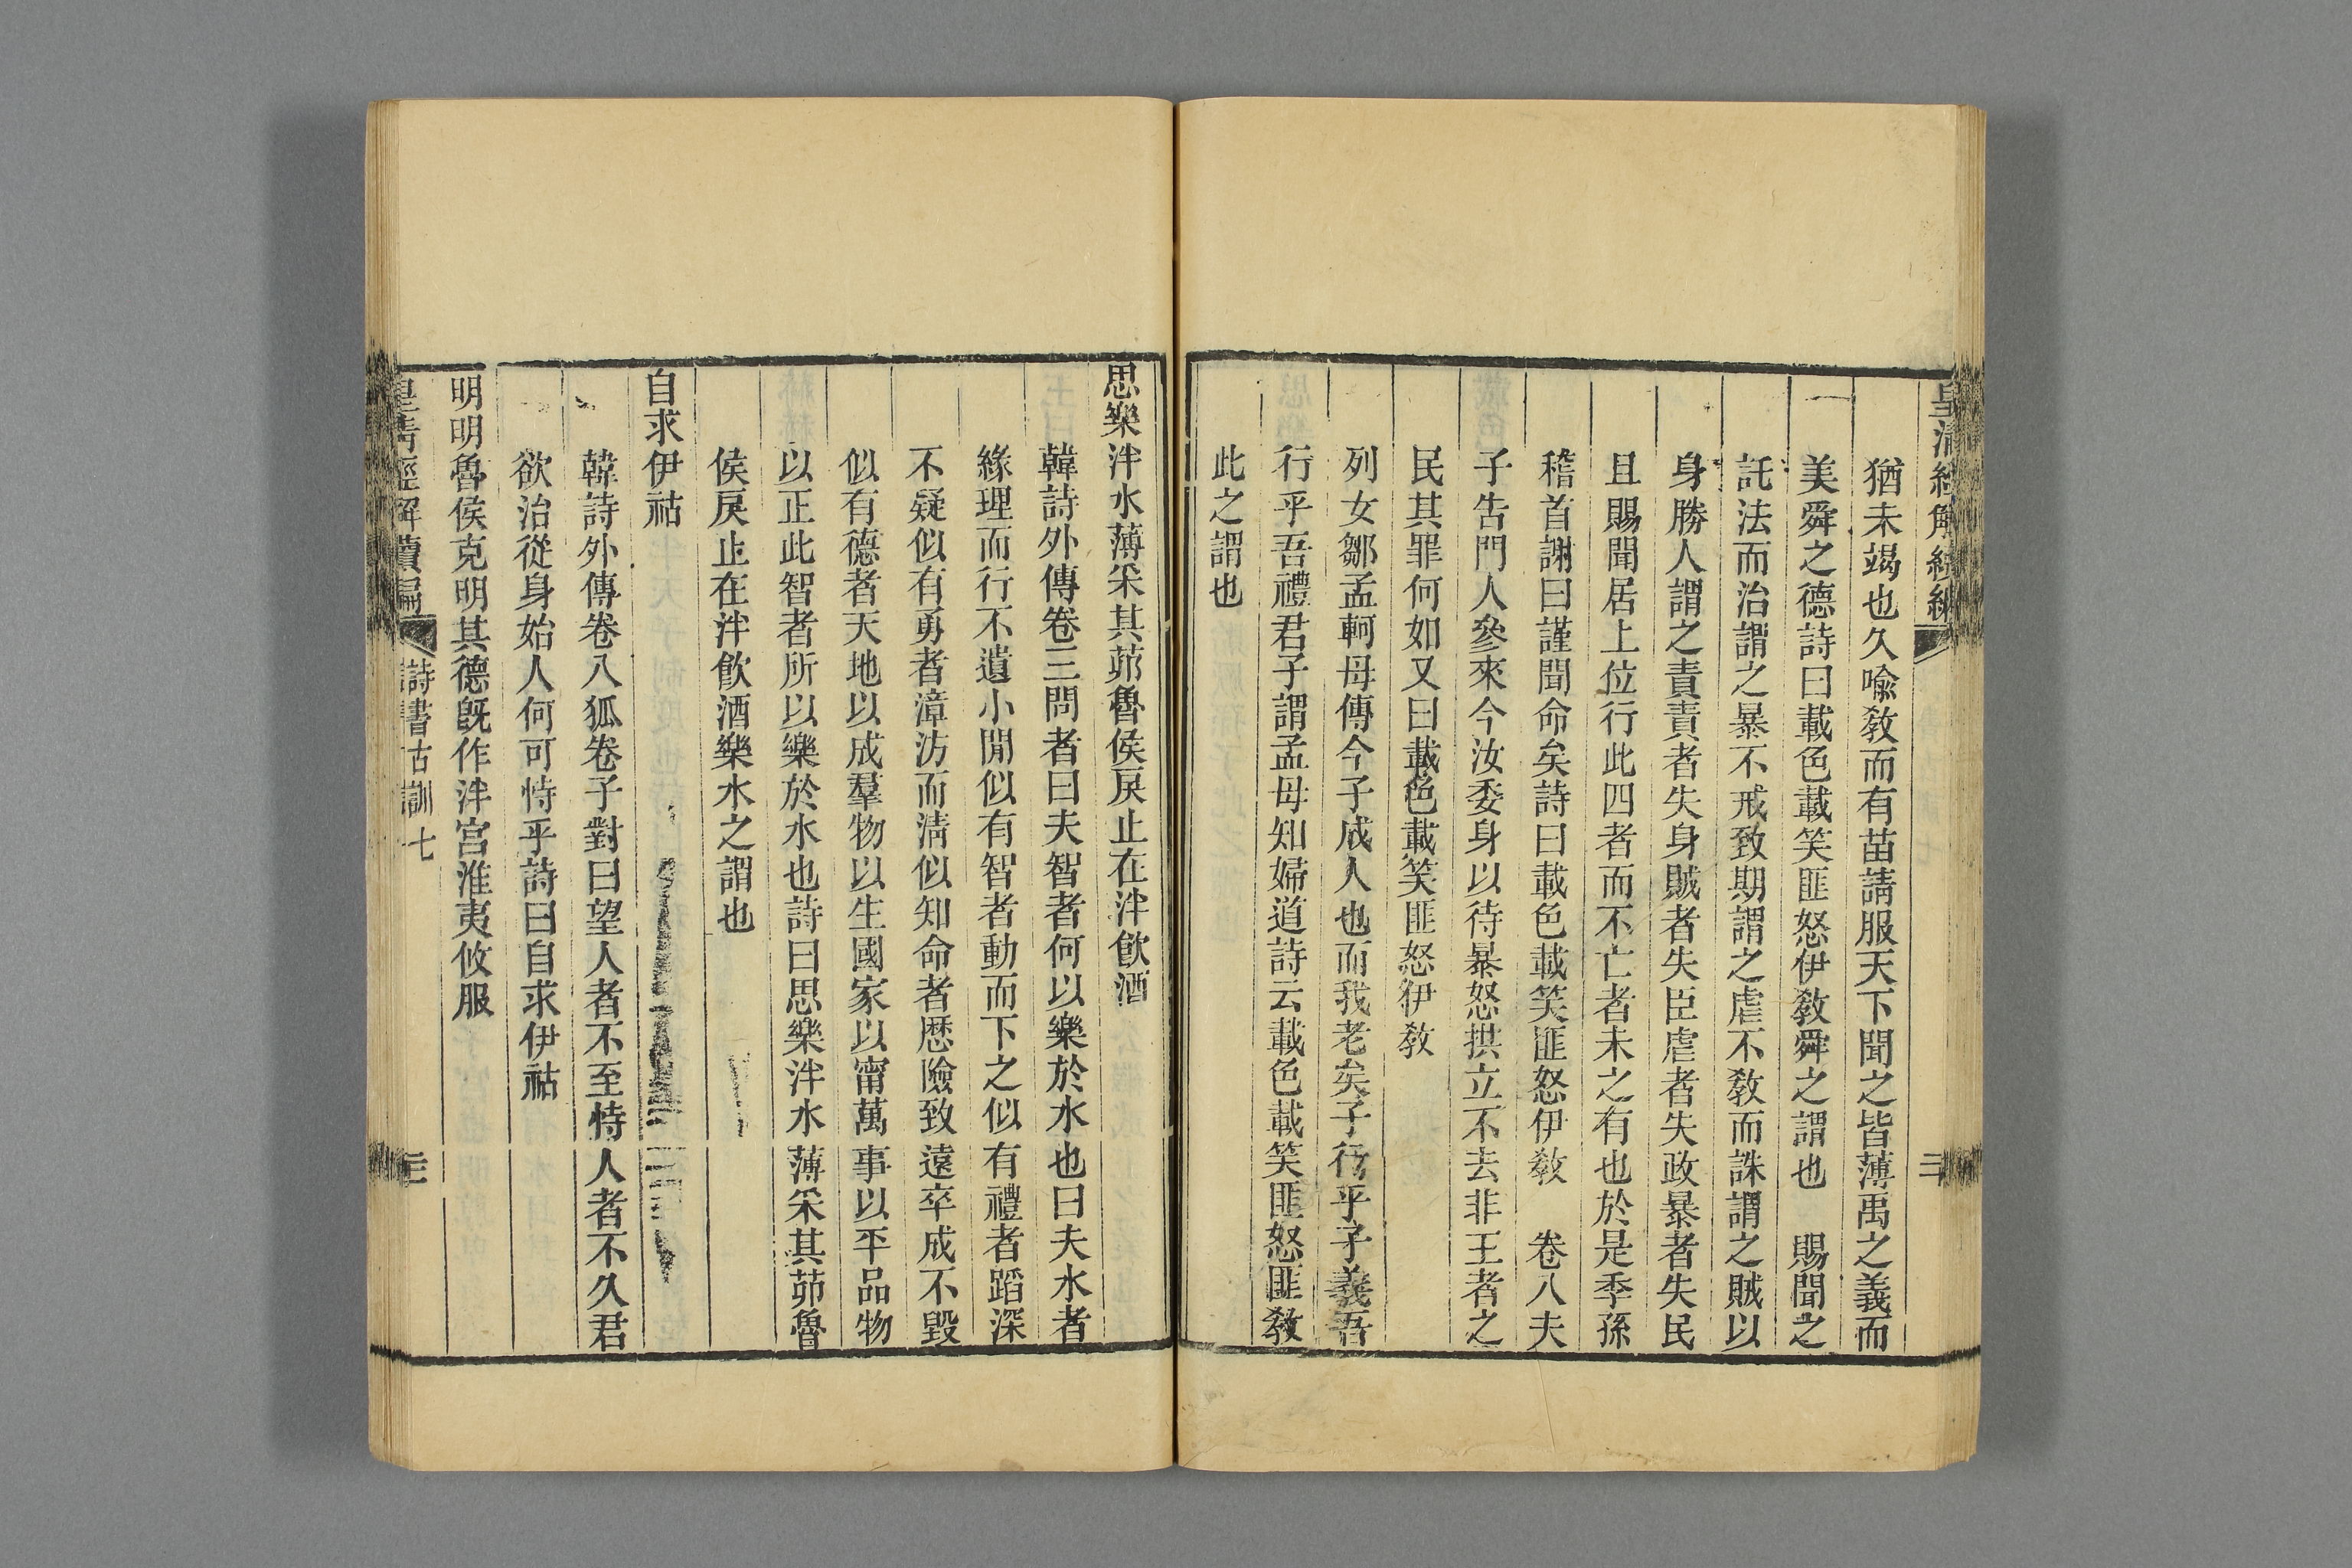 皇清經解續編
三
猶未竭也久喩敎而有苗請服天下聞之皆薄禹之義而
美舜之德詩曰載色載笑匪怒伊敎舜之謂也　賜聞之
託法而治謂之暴不戒致期謂之虐不敎而誅謂之賊以
身勝人謂之責責者失身賊者失臣虐者失政暴者失民
且賜聞居上位行此四者而不亡者未之有也於是季孫
稽首謝曰謹聞命矣詩曰載色載笑匪怒伊敎　卷八夫
子告門人參來今汝委身以待暴怒拱立不去非王者之
民其罪何如又曰載色載笑匪怒伊敎
列女鄒孟軻母傳今子成人也而我老矣子行乎子義吾
行乎吾禮君子謂孟母知婦道詩云載色載笑匪怒匪敎
此之謂也
思樂泮水薄采其茆魯侯戾止在泮飮酒
韓詩外傳卷三問者曰夫智者何以樂於水也曰夫水者
緣理而行不遺小閒似有智者動而下之似有禮者蹈深
不疑似有勇者漳汸而淸似知命者歷險致遠卒成不毀
似有德者天地以成羣物以生國家以甯萬事以平品物
以正此智者所以樂於水也詩曰思樂泮水薄采其茆魯
侯戾止在泮飮酒樂水之謂也
自求伊祜
韓詩外傳卷八狐卷子對曰望人者不至恃人者不久君
欲治從身始人何可恃乎詩曰自求伊祜
明明魯侯克明其德旣作泮宮淮夷攸服
皇清經解續編
詩書古訓七
三